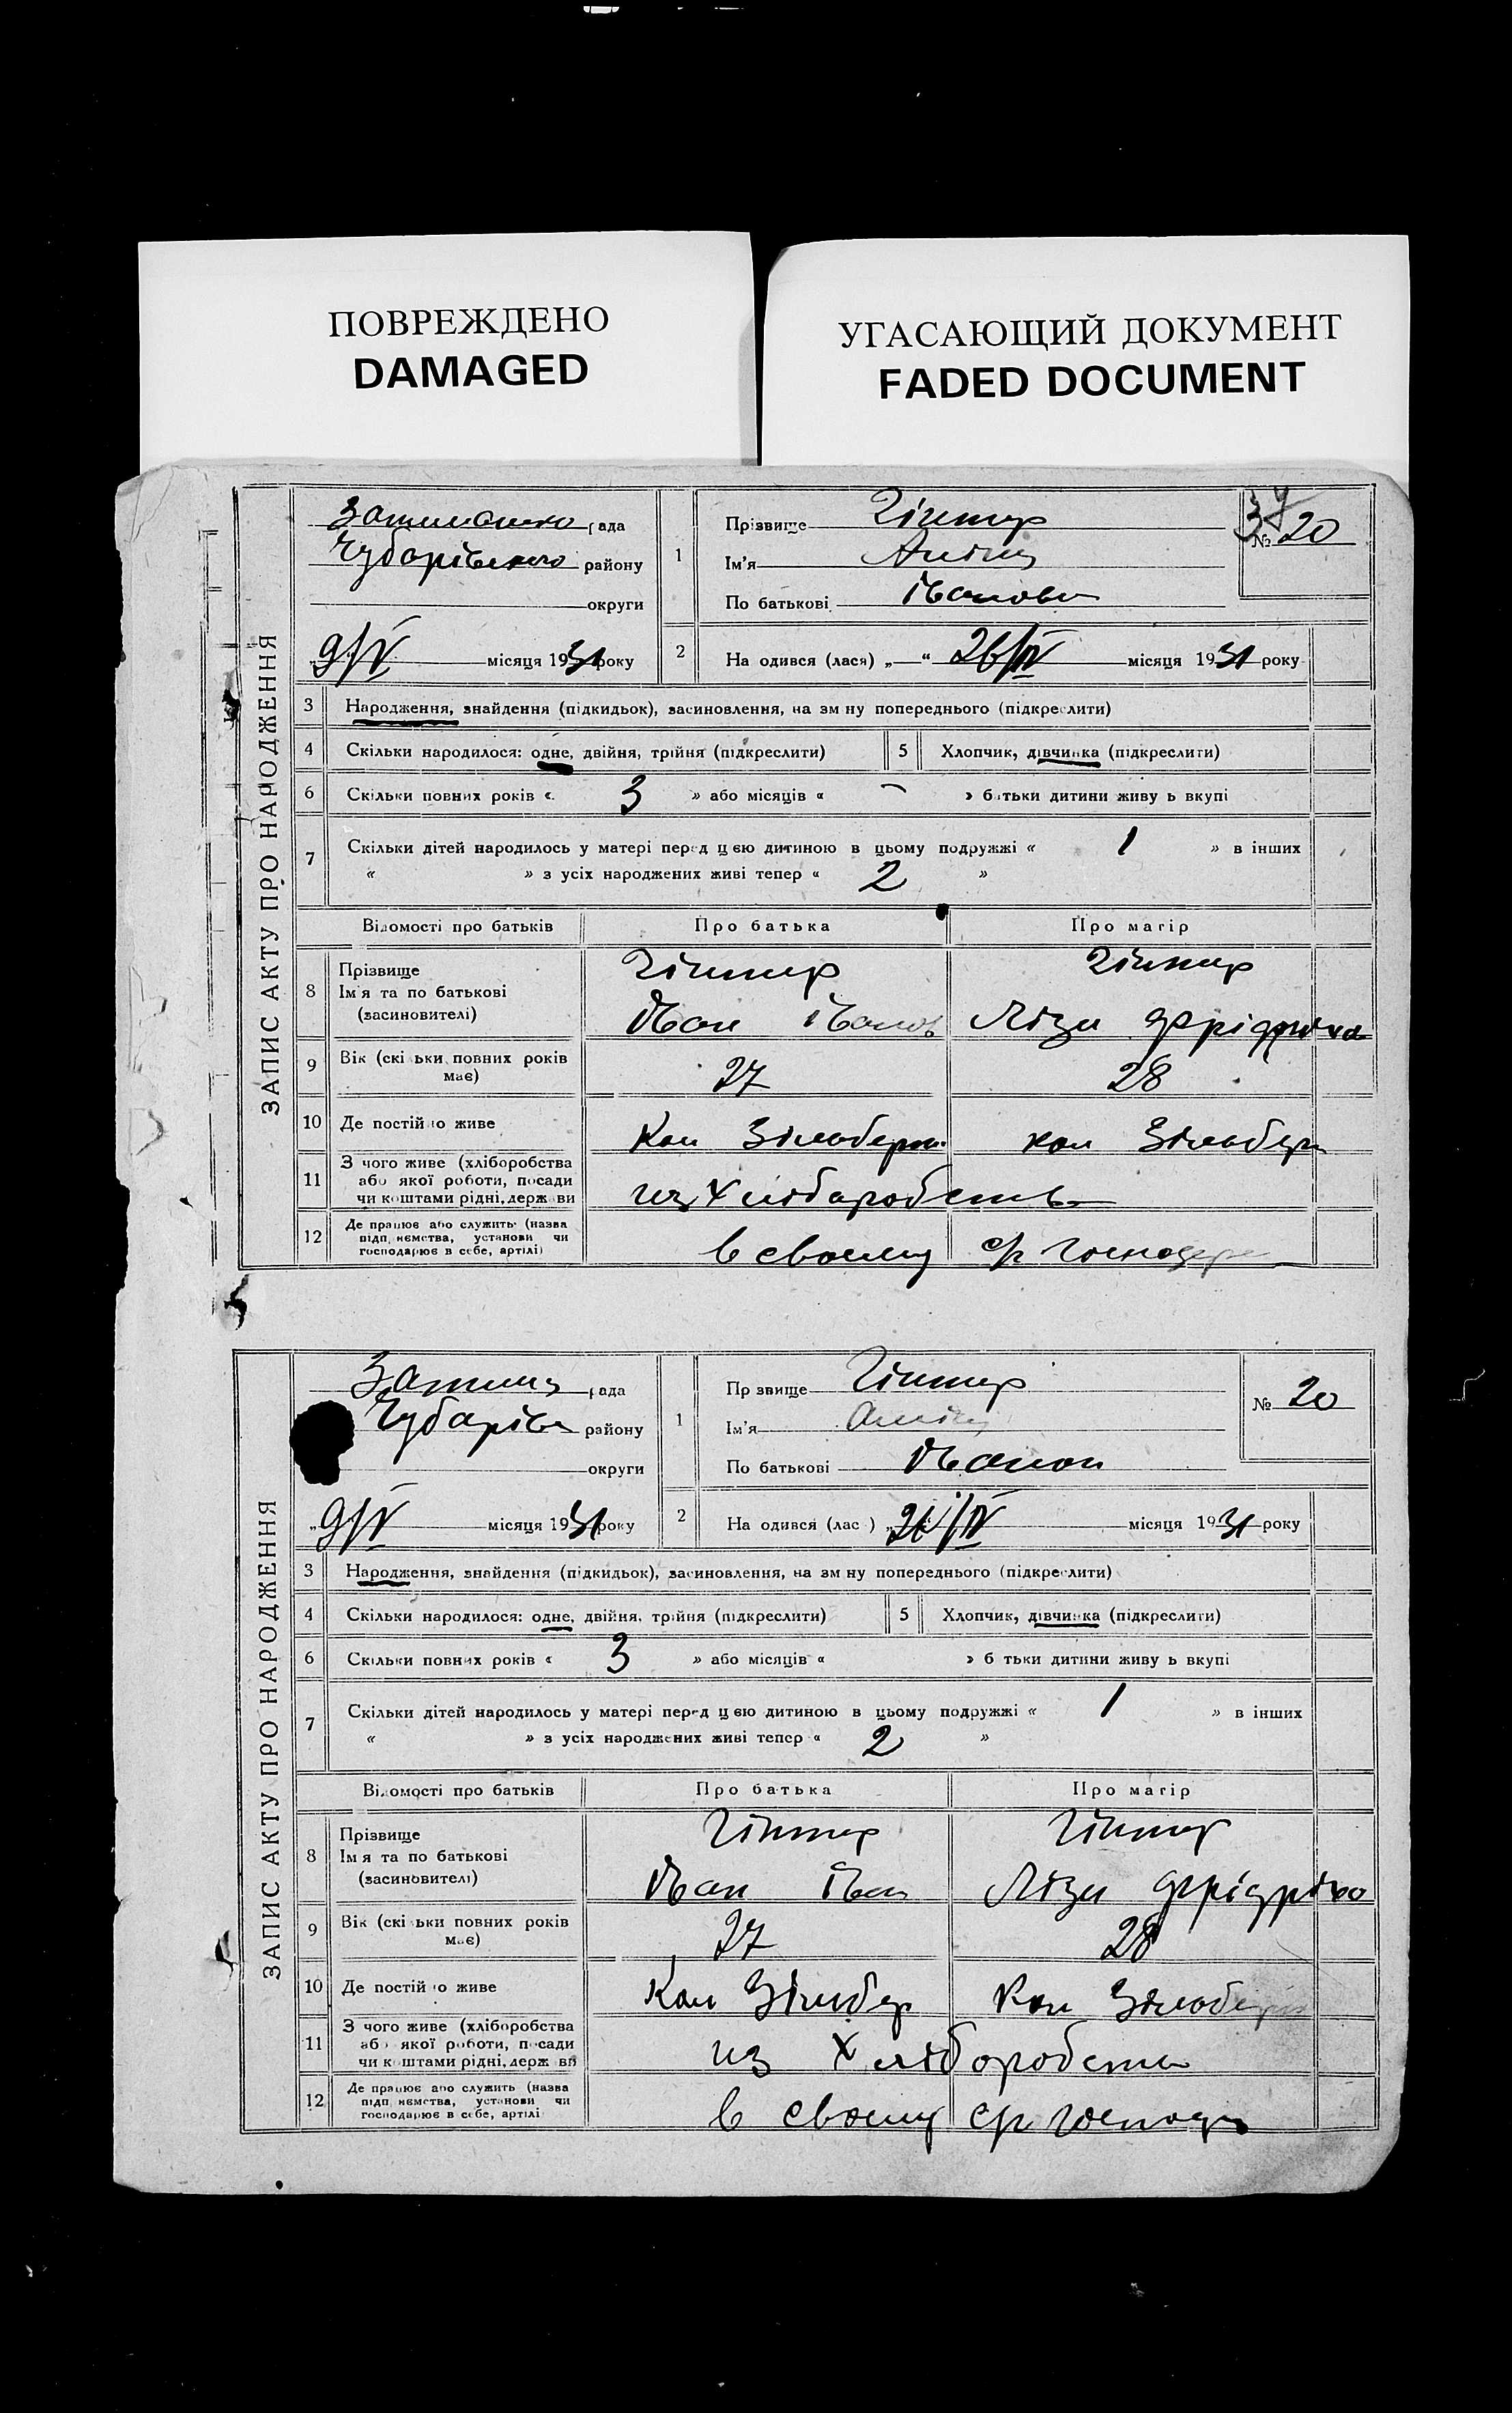 ПОВРЕЖДЕНО
DAMAGED
УГАСАЮЩИЙ ДОКУМЕНТ
FADED DOCUMENT
ЗАПИС АКТУ ПРО НАРОДЖЕННЯ
рада
Чубарівського району
округи
9/V місяця 1931 року
37
№ 20
1 Прізвище Гінтер
Ім'я
По батькові Іванов
2 На одився (лася) „ “ 26/IV місяця 1931 року
3 Народження, знайдення (підкидьок), засиновлення, на зм ну попереднього (підкреслити)
4 Скільки народилося: одне, двійня, трійня (підкреслити) 5 Хлопчик, дівчинка (підкреслити)
6 Скільки повних років « 3 » або місяців « – » батьки дитини живу ь вкупі
7 Скільки дітей народилось у матері перед цією дитиною в цьому подружжі « 1 » в інших
« » з усіх народжених живі тепер « 2 »
Відомості про батьків Про батька Про матір
8 Прізвище Гінтер Гінтер
Ім'я та по батькові
(засиновителі) Іван Іванов Ліза Фрідріхо
9 Вік (скі ьки повних років
має) 27 28
10 Де постій о живе Кол Зільберт кол Зільбер
11 З чого живе (хліборобства
або якої роботи, посади
чи коштами рідні, держави из Хліборобств
12 Де працює або служить (назва
підп иємства, установи чи
господарює в себе, артілі) в своему с/г господар
ЗАПИС АКТУ ПРО НАРОДЖЕННЯ
рада
Чубарівс району
округи
„ 9/V місяця 1931 року
№ 20
1 Пр звище Гінтер
Ім'я
По батькові Іванов
2 На одився (лас ) „ /IV місяця 1931 року
3 Народження, знайдення (підкидьок), засиновлення, на зм ну попереднього (підкреслити)
4 Скільки народилося: одне, двійня, трійня (підкреслити) 5 Хлопчик, дівчинка (підкреслити)
6 Скільки повних років « 3 » або місяців « » б тьки дитини живу ь вкупі
7 Скільки дітей народилось у матері перед цією дитиною в цьому подружжі « 1 » в інших
« » з усіх народжених живі тепер « 2 »
Відомості про батьків Про батька Про матір
8 Прізвище Гінтер Гінтер
Ім'я та по батькові
(засиновителі) Іван Іван Ліза Фрідріхо
9 Вік (скі ьки повних років
має) 27 28
10 Де постій о живе Кол Зільбер Кол Зільбер
11 З чого живе (хліборобства
або якої роботи, посади
чи коштами рідні, держ ви из Хліборобств
12 Де працює або служить (назва
підп иємства, установи чи
господарює в себе, артілі в своему с/г господ